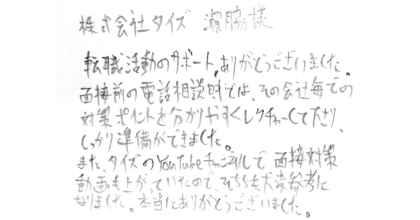 株式会社タイズ 濱脇様
転職活動のサポート、ありがとうございました。
面接前の電話相談では、その会社毎での
対策ポイントを分かりやすくレクチャーして下さり、
しっかり準備ができました。
また、タイズのYouTubeチャンネルで面接対策
動画も上がっていたので、そちらも大変参考に
なりました。本当にありがとうございました。